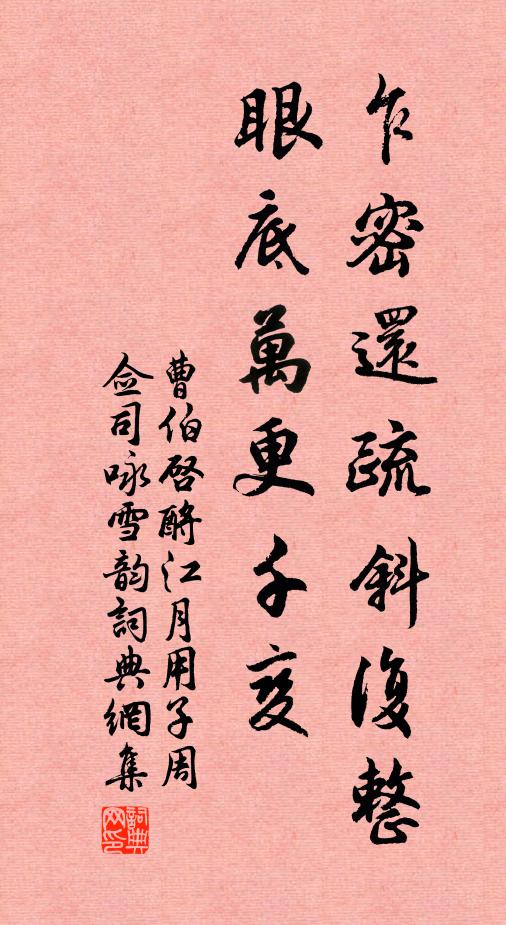 乍密還疏斜復整
眼底萬更千变
曹伯啓酹江月用子周
佥司咏雪韵詞典網集
詞典网印